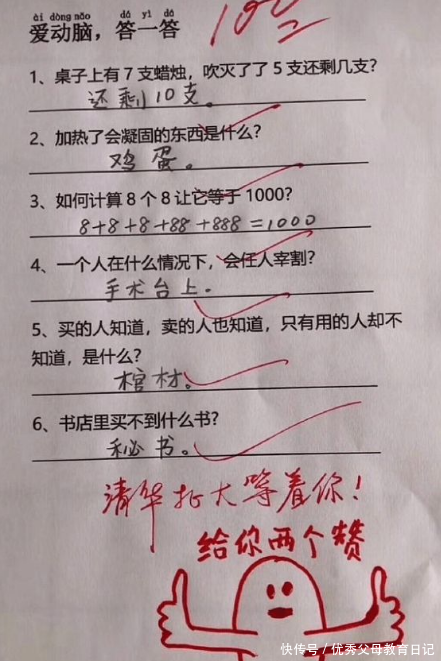 ài dòng nǎo dá yì dá
爱动脑，答一答
100
1、桌子上有7支蜡烛，吹灭了了5支还剩几支？
还剩10支。
2、加热了会凝固的东西是什么？
鸡蛋。
3、如何计算8个8让它等于1000？
8+8+8+88+888=1000
4、一个人在什么情况下，会任人宰割？
手术台上.
5、买的人知道，卖的人也知道，只有用的人却不
知道，是什么？
棺材。
6、书店里买不到什么书？
秘书。
清华北大等着你！
给你两个赞
快传号/优秀父母教育日记